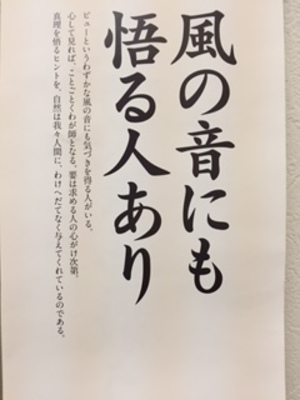 風の音にも
悟る人あり
ピューというわずかな風の音にも気づきを得る人がいる。
心して見れば、ことごとくわが師となる。要は求める人の心がけ次第。
真理を悟るヒントを、自然は我々人間に、わけへだてなく与えてくれているのである。